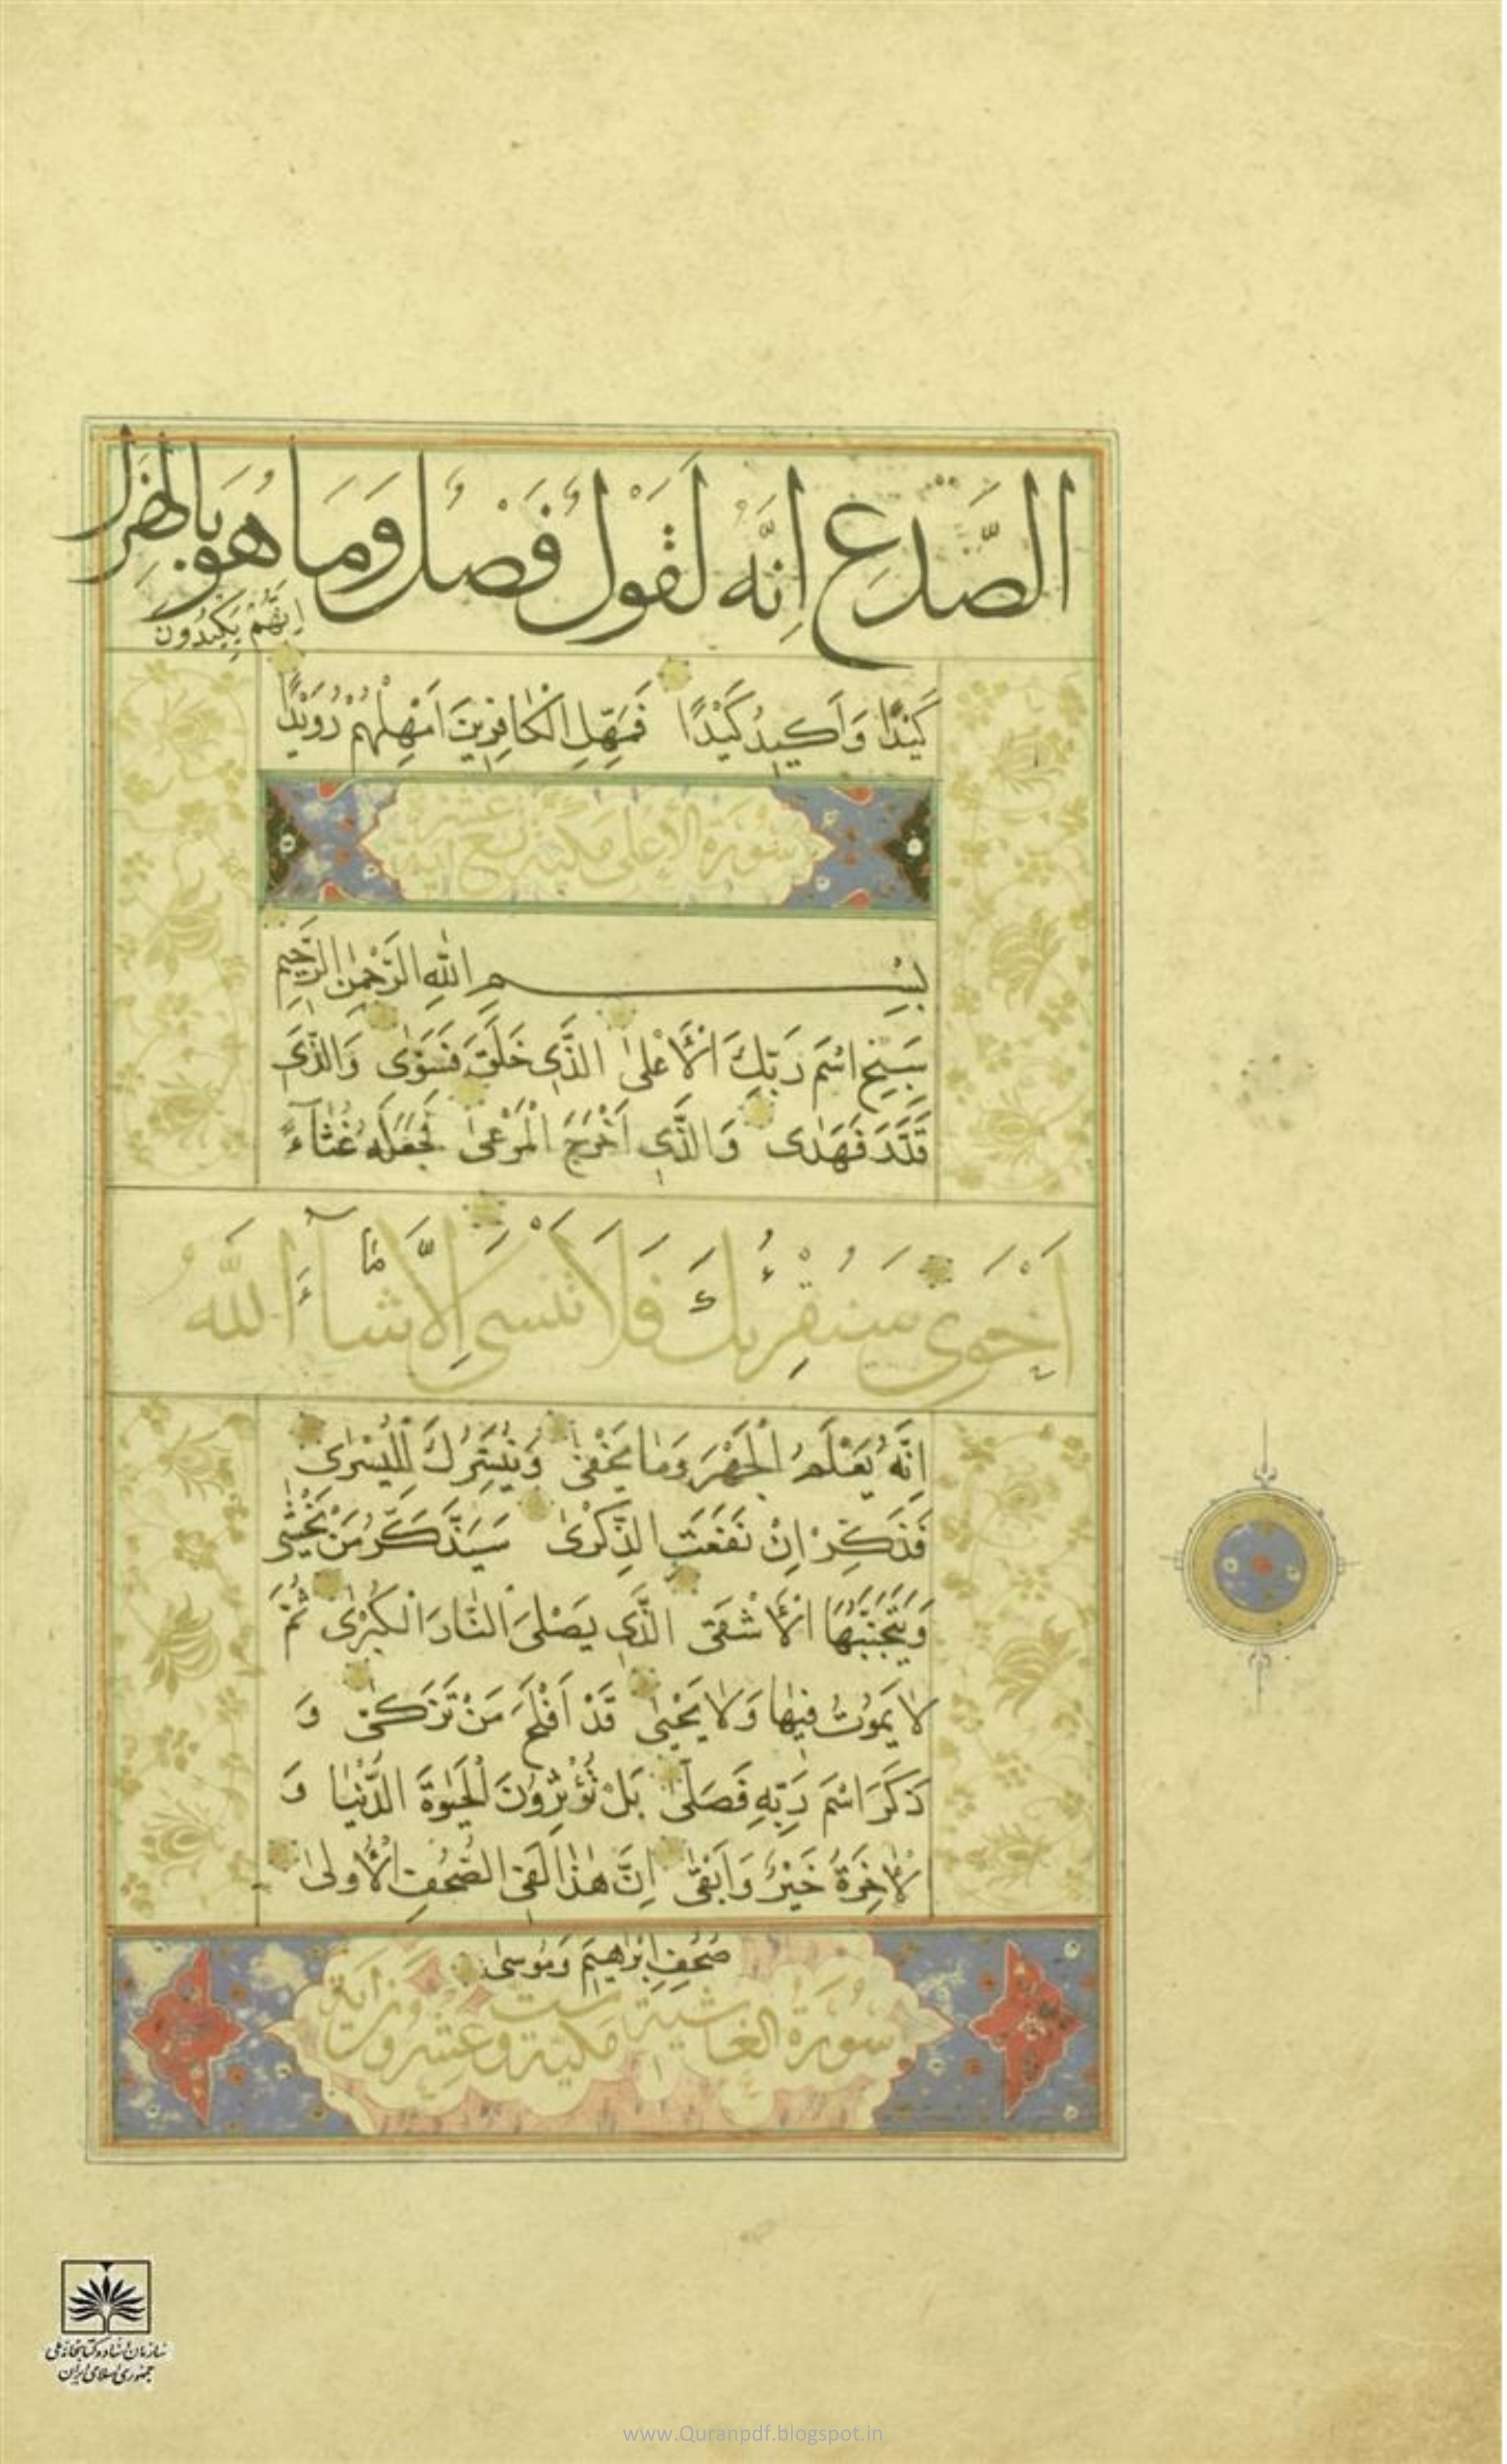 الصَّدْعِ اِنَّهُ لَقَوْلٌ فَصْلٌ وَمَا هُوَ بِالْهَزْلِ
اِنَّهُمْ يَكِيدُونَ
كَيْدًا وَاَكِيدُ كَيْدًا فَمَهِّلِ الْكَافِرِينَ اَمْهِلْهُمْ رُوَيْدًا
سورة الاعلى مكية تسع عشرة اية
بِسْمِ اللهِ الرَّحْمٰنِ الرَّحِيمِ
سَبِّحِ اسْمَ رَبِّكَ الْاَعْلىٰ الَّذِي خَلَقَ فَسَوّٰى وَالَّذِي
قَدَّرَ فَهَدٰى وَالَّذِي اَخْرَجَ الْمَرْعىٰ فَجَعَلَهُ غُثَآءً
اَحْوٰى سَنُقْرِئُكَ فَلَا تَنْسٰى اِلَّا مَا شَآءَ اللهُ
اِنَّهُ يَعْلَمُ الْجَهْرَ وَمَا يَخْفىٰ وَنُيَسِّرُكَ لِلْيُسْرٰى
فَذَكِّرْ اِنْ نَفَعَتِ الذِّكْرٰى سَيَذَّكَّرُ مَنْ يَخْشٰى
وَيَتَجَنَّبُهَا الْاَشْقَى الَّذِي يَصْلَى النَّارَ الْكُبْرٰى ثُمَّ
لَا يَمُوتُ فِيهَا وَلَا يَحْيىٰ قَدْ اَفْلَحَ مَنْ تَزَكّٰى وَ
ذَكَرَ اسْمَ رَبِّهِ فَصَلّٰى بَلْ تُؤْثِرُونَ الْحَيٰوةَ الدُّنْيَا وَ
الْاٰخِرَةُ خَيْرٌ وَاَبْقىٰ اِنَّ هٰذَا لَفِي الصُّحُفِ الْاُولىٰ
صُحُفِ اِبْرٰهِيمَ وَمُوسىٰ
سورة الغاشية مكية ست وعشرون اية
سازمان اسناد و کتابخانه ملی
جمهوری اسلامی ایران
www.Quranpdf.blogspot.in